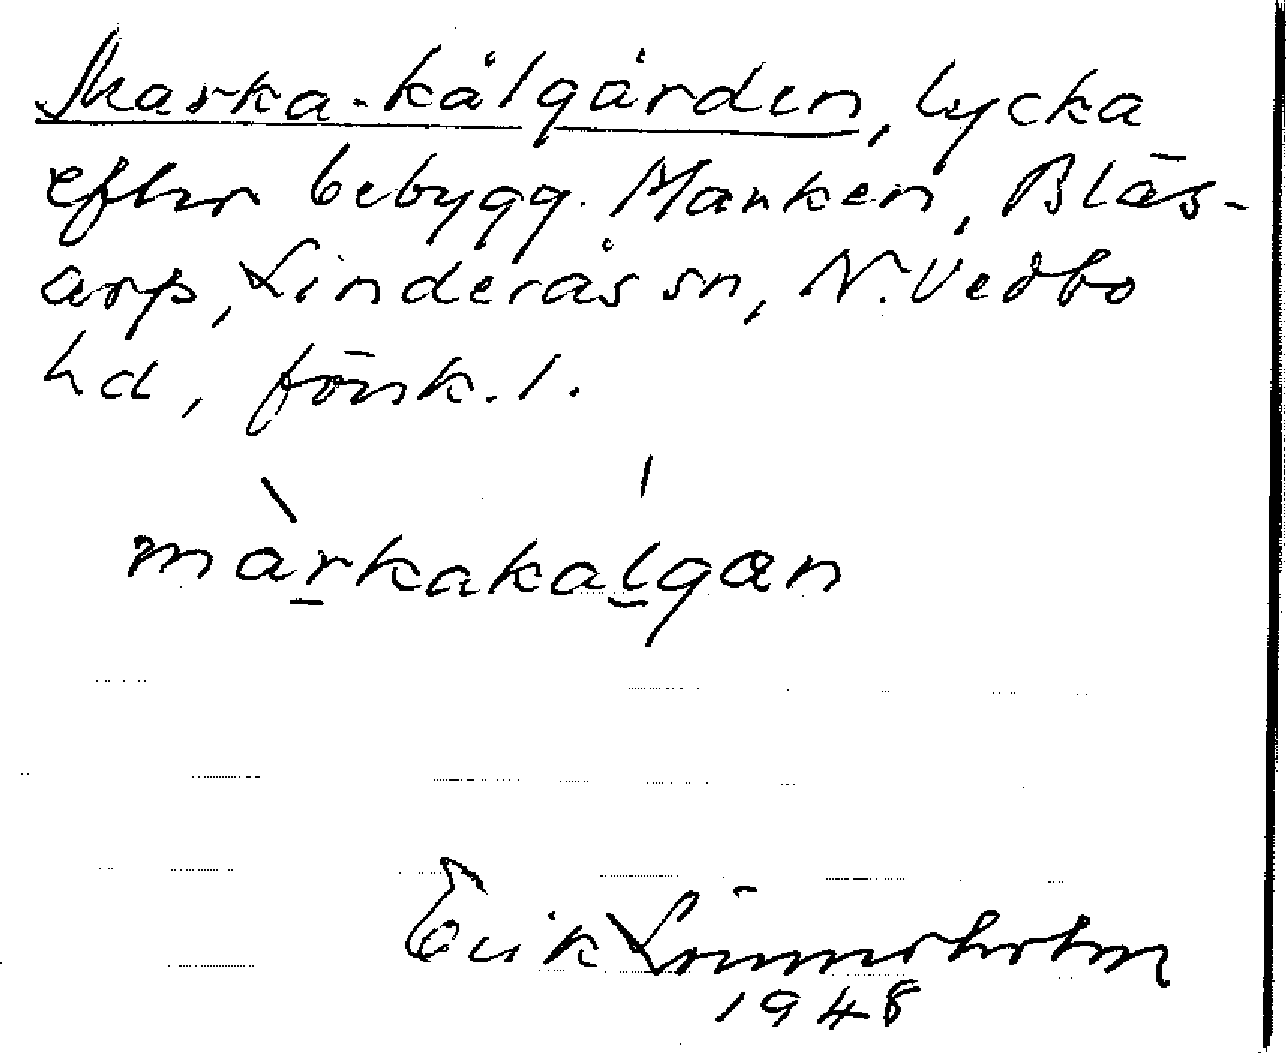 Marka-kålgården, lycka
efter bebygg. Manken, Bläs-
arp, Linderås sn, N. Vedbo
hd, Jönk. l.
màrkakálgan
Erik Lönnerholm
1948